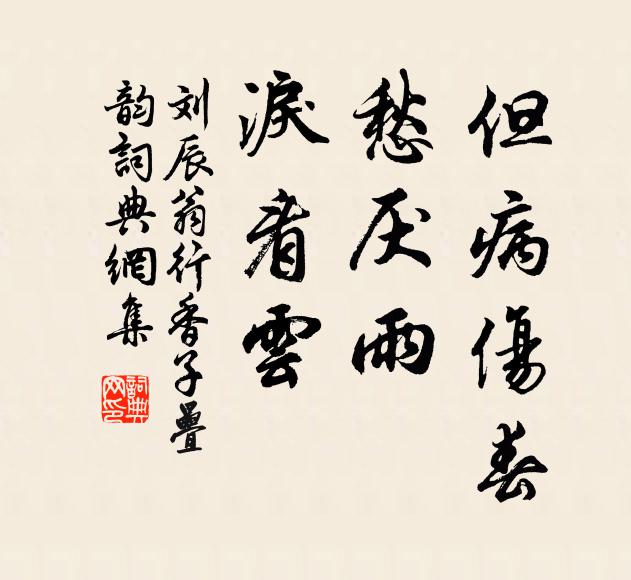 但病傷春
愁厌雨
淚看雲
刘辰翁行香子疊
韵詞典網集
詞典网印